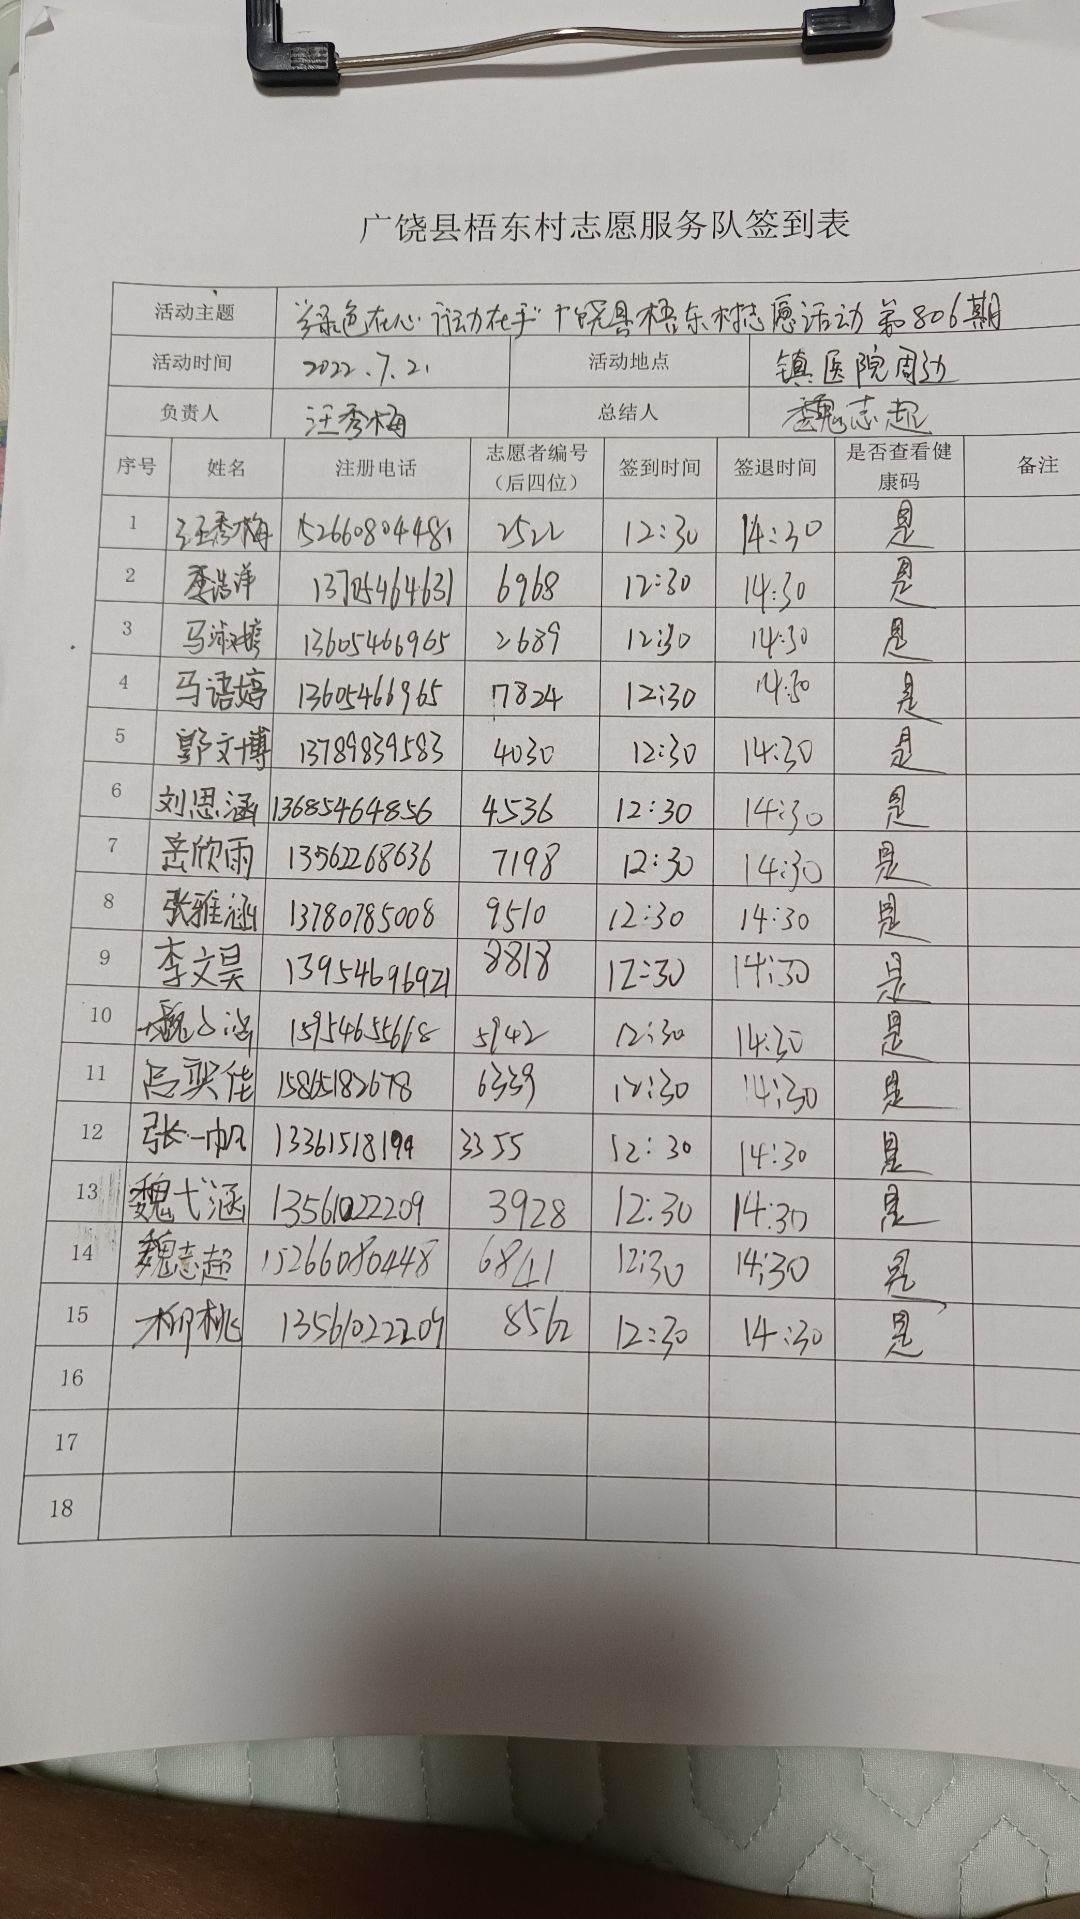 广饶县梧东村志愿服务队签到表
活动主题 "绿色在心 行动在手" 广饶县梧东村志愿活动第806期
活动时间 2022.7.21 活动地点 镇医院周边
负责人 汪秀梅 总结人 魏志超
序号 姓名 注册电话 志愿者编号（后四位） 签到时间 签退时间 是否查看健康码 备注
1 汪秀梅 152660804481 2522 12:30 14:30 是
2 李浩洋 13705464631 6968 12:30 14:30 是
3 马 13605466965 2689 12:30 14:30 是
4 马语婷 13605466965 7824 12:30 14:30 是
5 郭文博 13789839583 4030 12:30 14:30 是
6 刘思涵 13685464856 4536 12:30 14:30 是
7 岳欣雨 13562268636 7198 12:30 14:30 是
8 张雅涵 13780785008 9510 12:30 14:30 是
9 李文昊 13954696921 8818 12:30 14:30 是
10 魏 涵 15954655668 5942 12:30 14:30 是
11 佳 15865182678 6339 12:30 14:30 是
12 张一帆 13361518194 3355 12:30 14:30 是
13 魏弋涵 13561022209 3928 12:30 14:30 是
14 魏志超 15266080448 6841 12:30 14:30 是
15 柳桃 13561022209 8562 12:30 14:30 是
16
17
18